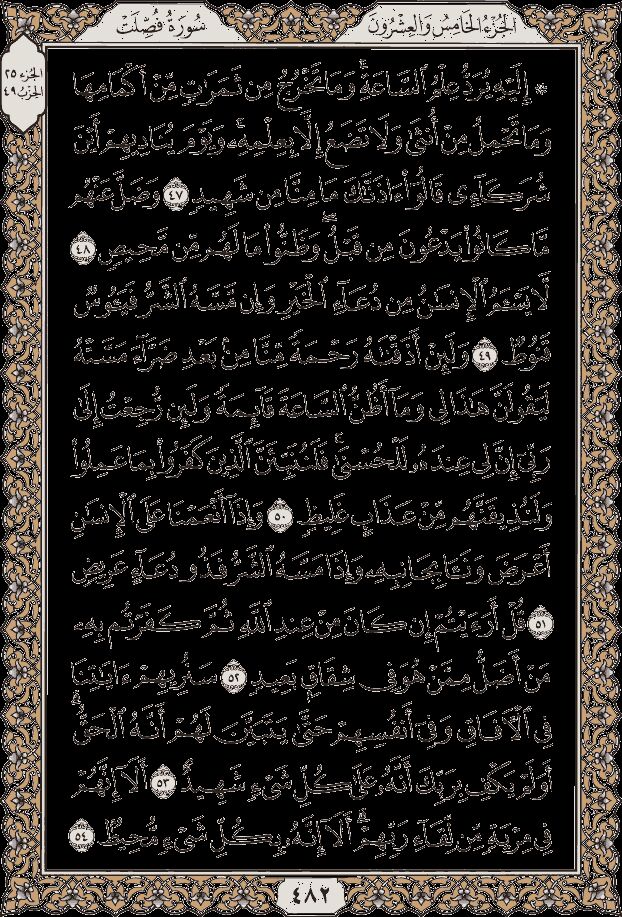 الجُزْءُ الخَامِسُ وَالعِشْرُونَ
سُورَةُ فُصِّلَتْ
الجزء ٢٥
الحزب ٤٩
۞ إِلَيْهِ يُرَدُّ عِلْمُ ٱلسَّاعَةِۚ وَمَا تَخْرُجُ مِن ثَمَرَٰتٖ مِّنْ أَكْمَامِهَا
وَمَا تَحْمِلُ مِنْ أُنثَىٰ وَلَا تَضَعُ إِلَّا بِعِلْمِهِۦۚ وَيَوْمَ يُنَادِيهِمْ أَيْنَ
شُرَكَآءِي قَالُوٓاْ ءَاذَنَّٰكَ مَا مِنَّا مِن شَهِيدٖ ٤٧ وَضَلَّ عَنْهُم
مَّا كَانُواْ يَدْعُونَ مِن قَبْلُۖ وَظَنُّواْ مَا لَهُم مِّن مَّحِيصٖ ٤٨
لَّا يَسْـَٔمُ ٱلْإِنسَٰنُ مِن دُعَآءِ ٱلْخَيْرِ وَإِن مَّسَّهُ ٱلشَّرُّ فَيَـُٔوسٞ
قَنُوطٞ ٤٩ وَلَئِنْ أَذَقْنَٰهُ رَحْمَةٗ مِّنَّا مِنۢ بَعْدِ ضَرَّآءَ مَسَّتْهُ
لَيَقُولَنَّ هَٰذَا لِي وَمَآ أَظُنُّ ٱلسَّاعَةَ قَآئِمَةٗ وَلَئِن رُّجِعْتُ إِلَىٰ
رَبِّيٓ إِنَّ لِي عِندَهُۥ لَلْحُسْنَىٰۚ فَلَنُنَبِّئَنَّ ٱلَّذِينَ كَفَرُواْ بِمَا عَمِلُواْ
وَلَنُذِيقَنَّهُم مِّنْ عَذَابٍ غَلِيظٖ ٥٠ وَإِذَآ أَنْعَمْنَا عَلَى ٱلْإِنسَٰنِ
أَعْرَضَ وَنَـَٔا بِجَانِبِهِۦ وَإِذَا مَسَّهُ ٱلشَّرُّ فَذُو دُعَآءٍ عَرِيضٖ
٥١ قُلْ أَرَءَيْتُمْ إِن كَانَ مِنْ عِندِ ٱللَّهِ ثُمَّ كَفَرْتُم بِهِۦ
مَنْ أَضَلُّ مِمَّنْ هُوَ فِي شِقَاقٍۭ بَعِيدٖ ٥٢ سَنُرِيهِمْ ءَايَٰتِنَا
فِي ٱلْأٓفَاقِ وَفِيٓ أَنفُسِهِمْ حَتَّىٰ يَتَبَيَّنَ لَهُمْ أَنَّهُ ٱلْحَقُّۗ
أَوَلَمْ يَكْفِ بِرَبِّكَ أَنَّهُۥ عَلَىٰ كُلِّ شَيْءٖ شَهِيدٌ ٥٣ أَلَآ إِنَّهُمْ
فِي مِرْيَةٖ مِّن لِّقَآءِ رَبِّهِمْۗ أَلَآ إِنَّهُۥ بِكُلِّ شَيْءٖ مُّحِيطُۢ ٥٤
٤٨٢